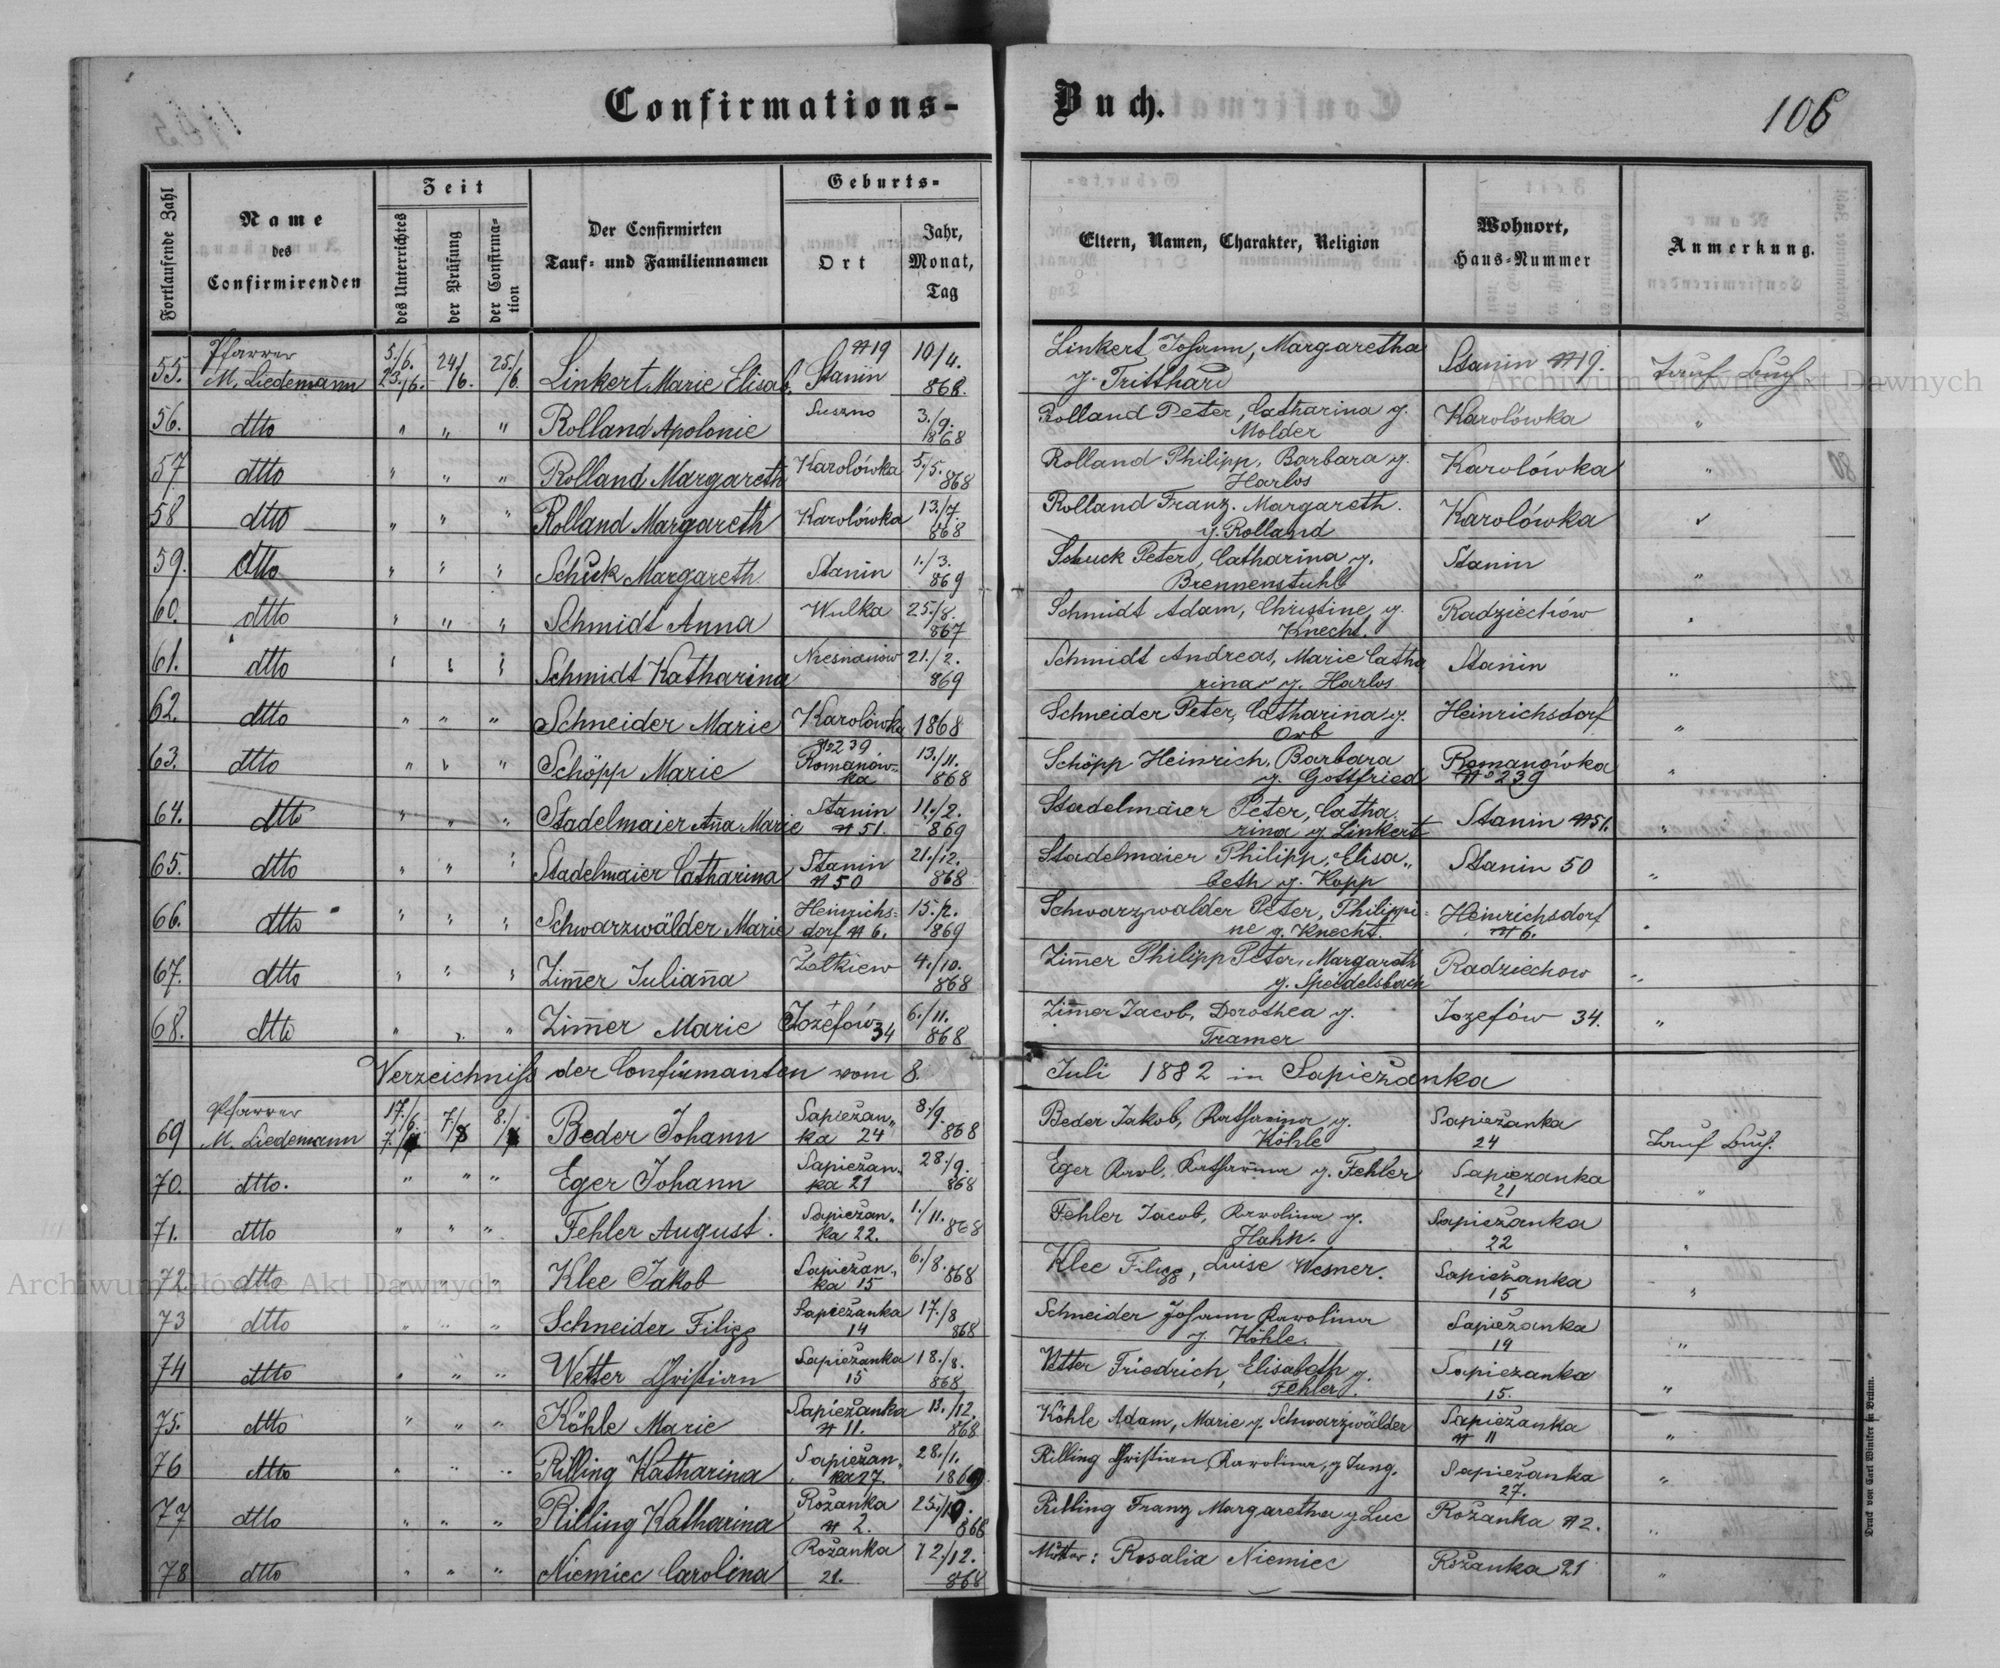 Confirmations-Buch.
106
Fortlaufende Zahl
Name des Confirmirenden
Zeit
des Unterrichtes
der Prüfung
der Confirmation
Der Confirmirten Tauf- und Familiennamen
Geburts-
Ort
Jahr, Monat, Tag
Eltern, Namen, Charakter, Religion
Wohnort, Haus-Nummer
Anmerkung.
55. Pfarrer M. Liedemann 5./6. 23./6. 24/6. 25/6. Linkert Marie Elisab. Stanin #19 10/4. 868. Linkert Johann, Margaretha g. Tritthard Stanin #19. Tauf Buch
56. dtto " " " Rolland Apolonie Suszno 3./9. 868 Rolland Peter, Catharina g. Molder Karolówka "
57. dtto " " " Rolland Margareth Karolówka 5./5. 868 Rolland Philipp, Barbara g. Harlos Karolówka "
58 dtto " " " Rolland Margareth Karolówka 13./7. 868 Rolland Franz. Margareth. g. Rolland Karolówka "
59. dtto " " " Schuck Margareth. Stanin 1./3. 869 Schuck Peter, Catharina g. Brennenstuhl Stanin "
60. dtto " " " Schmidt Anna Wulka 25./8. 867 Schmidt Adam, Christine g. Knecht. Radziechów "
61. dtto " " " Schmidt Katharina Niesnanów 21./2. 869 Schmidt Andreas, Marie Catharina g. Harlos Stanin "
62. dtto " " " Schneider Marie Karolówka 1868 Schneider Peter, Catharina g. Orb Heinrichsdorf "
63. dtto " " " Schöpp Marie No 239 Romanówka 13./11. 868 Schöpp Heinrich, Barbara g. Gottfried Romanówka No 239 "
64. dtto " " " Stadelmaier Aña Marie Stanin #51. 11./2. 869 Stadelmaier Peter, Catharina g Linkert Stanin #51. "
65. dtto " " " Stadelmaier Catharina Stanin #50 21./12. 868 Stadelmaier Philipp, Elisabeth g. Kopp Stanin 50 "
66. dtto " " " Schwarzwälder Marie Heinrichsdorf #6. 15./2. 869 Schwarzwalder Peter, Philippine g. Knecht. Heinrichsdorf #6. "
67. dtto " " " Zim̄er Juliana Żółkiew 4./10. 868 Zim̄er Philipp Peter, Margareth g. Speidelsbach Radziechow "
68. dtto " " " Zim̄er Marie Józefów 34 6./11. 868 Zim̄er Jacob, Dorothea g. Tramer Jozefów 34. "
Verzeichniß der Confirmanten vom 8. Juli 1882 in Sapieżanka
69 Pfarrer M. Liedemann 17./6. 7./ 7./ 8./ Beder Johann Sapieżanka 24 8./9. 868 Beder Jakob, Katharina g. Köhle Sapieżanka 24 Tauf Buch.
70. dtto. " " " Eger Johann Sapieżanka 21 28./9. 868 Eger Karl, Katharina g. Fehler Sapiezanka 21 "
71. dtto " " " Fehler August. Sapieżanka 22. 1./11. 868 Fehler Jacob, Karolina g. Hahn. Sapieżanka 22 "
72. dtto " " " Klee Jakob Sapieżanka 15 6./8. 868 Klee Filipp, Luise Wesner. Sapieżanka 15 "
73 dtto " " " Schneider Filipp Sapieżanka 14 17./8 868 Schneider Johann Karolina g. Köhle. Sapieżanka 14 "
74 dtto " " " Vetter Christian Sapieżanka 15 18./8. 868 Vetter Friedrich, Elisabeth g. Fehler. Sapiezanka 15. "
75. dtto " " " Köhle Marie Sapieżanka #11. 13./12. 868 Köhle Adam, Marie g. Schwarzwälder Sapieżanka #11 "
76 dtto " " " Rilling Katharina Sapieżanka 27. 28./1. 1869 Rilling Christian, Karolina, g Jung. Sapieżanka 27. "
77 dtto " " " Rilling Katharina Rożanka #2. 25./10. 868 Rilling Franz Margaretha g Luc Rożanka #2. "
78 dtto " " " Niemiec Carolina Rożanka 21. 12./12. 868 Mutter: Rosalia Niemiec Rożanka 21 "
Druck von Carl Winiker in Brünn.
Archiwum Główne Akt Dawnych
Archiwum Główne Akt Dawnych